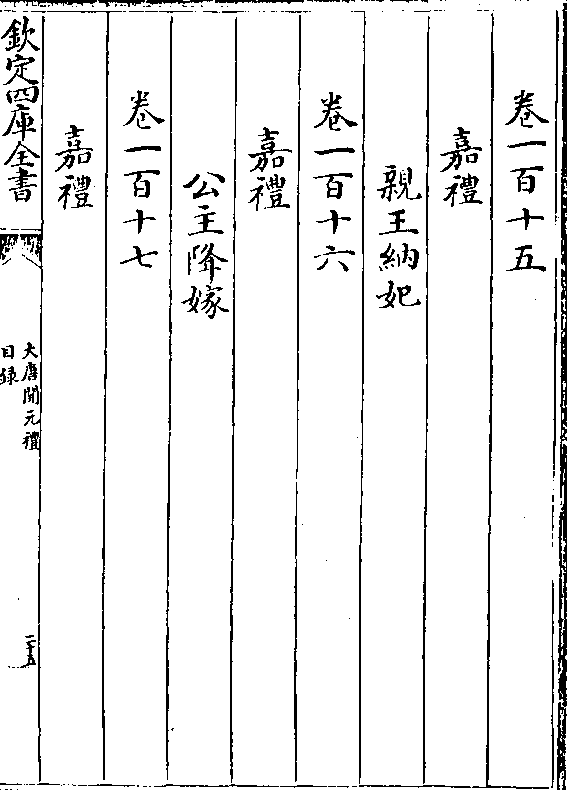 卷一百十五
嘉禮
親王納妃
卷一百十六
嘉禮
公主降嫁
卷一百十七
嘉禮
欽定四庫全書
大唐開元禮
目錄
二十五